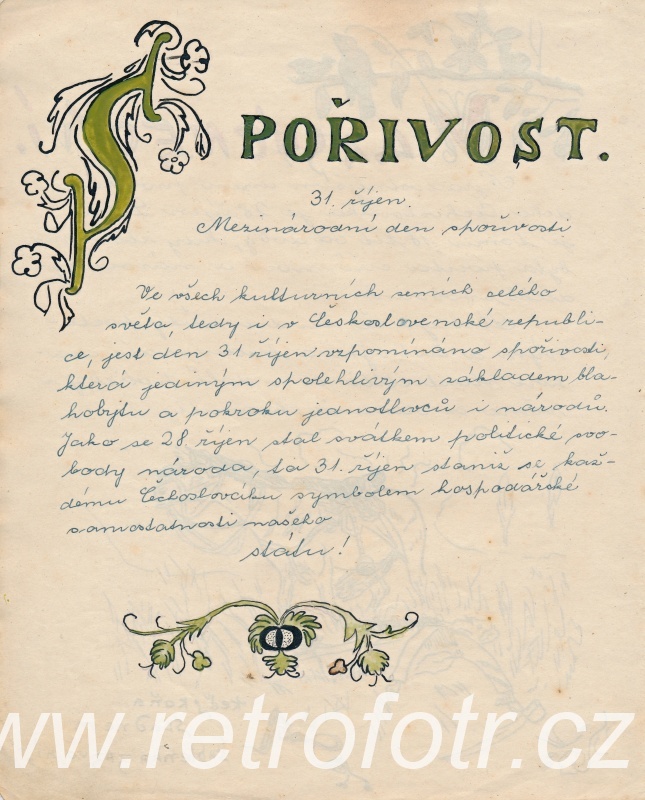 SPOŘIVOST.
31. říjen.
Mezinárodní den spořivosti
Ve všech kulturních zemích celého
světa, tedy i v Československé republi-
ce, jest den 31 říjen vzpomínáno spořivosti,
která jediným spolehlivým základem bla-
hobytu a pokroku jednotlivců i národů.
Jako se 28. říjen stal svátkem politické svo-
body národa, ta 31. říjen staniž se kaž-
dému Čechoslováku symbolem hospodářské
samostatnosti našeho
státu!
www.retrofotr.cz